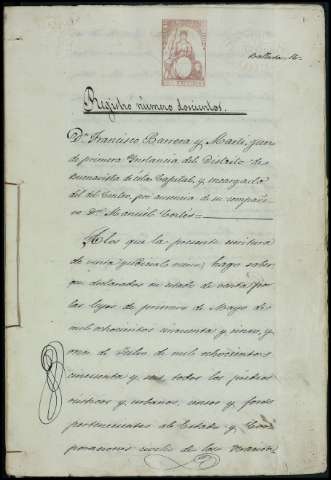 Registro número doscientos.
Dn. Francisco Barrera y Martí, juez
de primera Instancia del Distrito de
Buenavista de esta Capital, y encargado
del del Centro, por ausencia de su compañe-
ro Dn. Manuel
A los que la presente escritura
de venta judicial vieren, hago saber
que declarados en estado de venta por
las leyes de primero de Mayo de
mil ochocientos cincuenta y cinco, y
once de Julio de mil ochocientos
cincuenta y seis todos los predios
rústicos y urbanos, censos y foros
pertenecientes al Estado y Cor-
poraciones civiles de la Nación